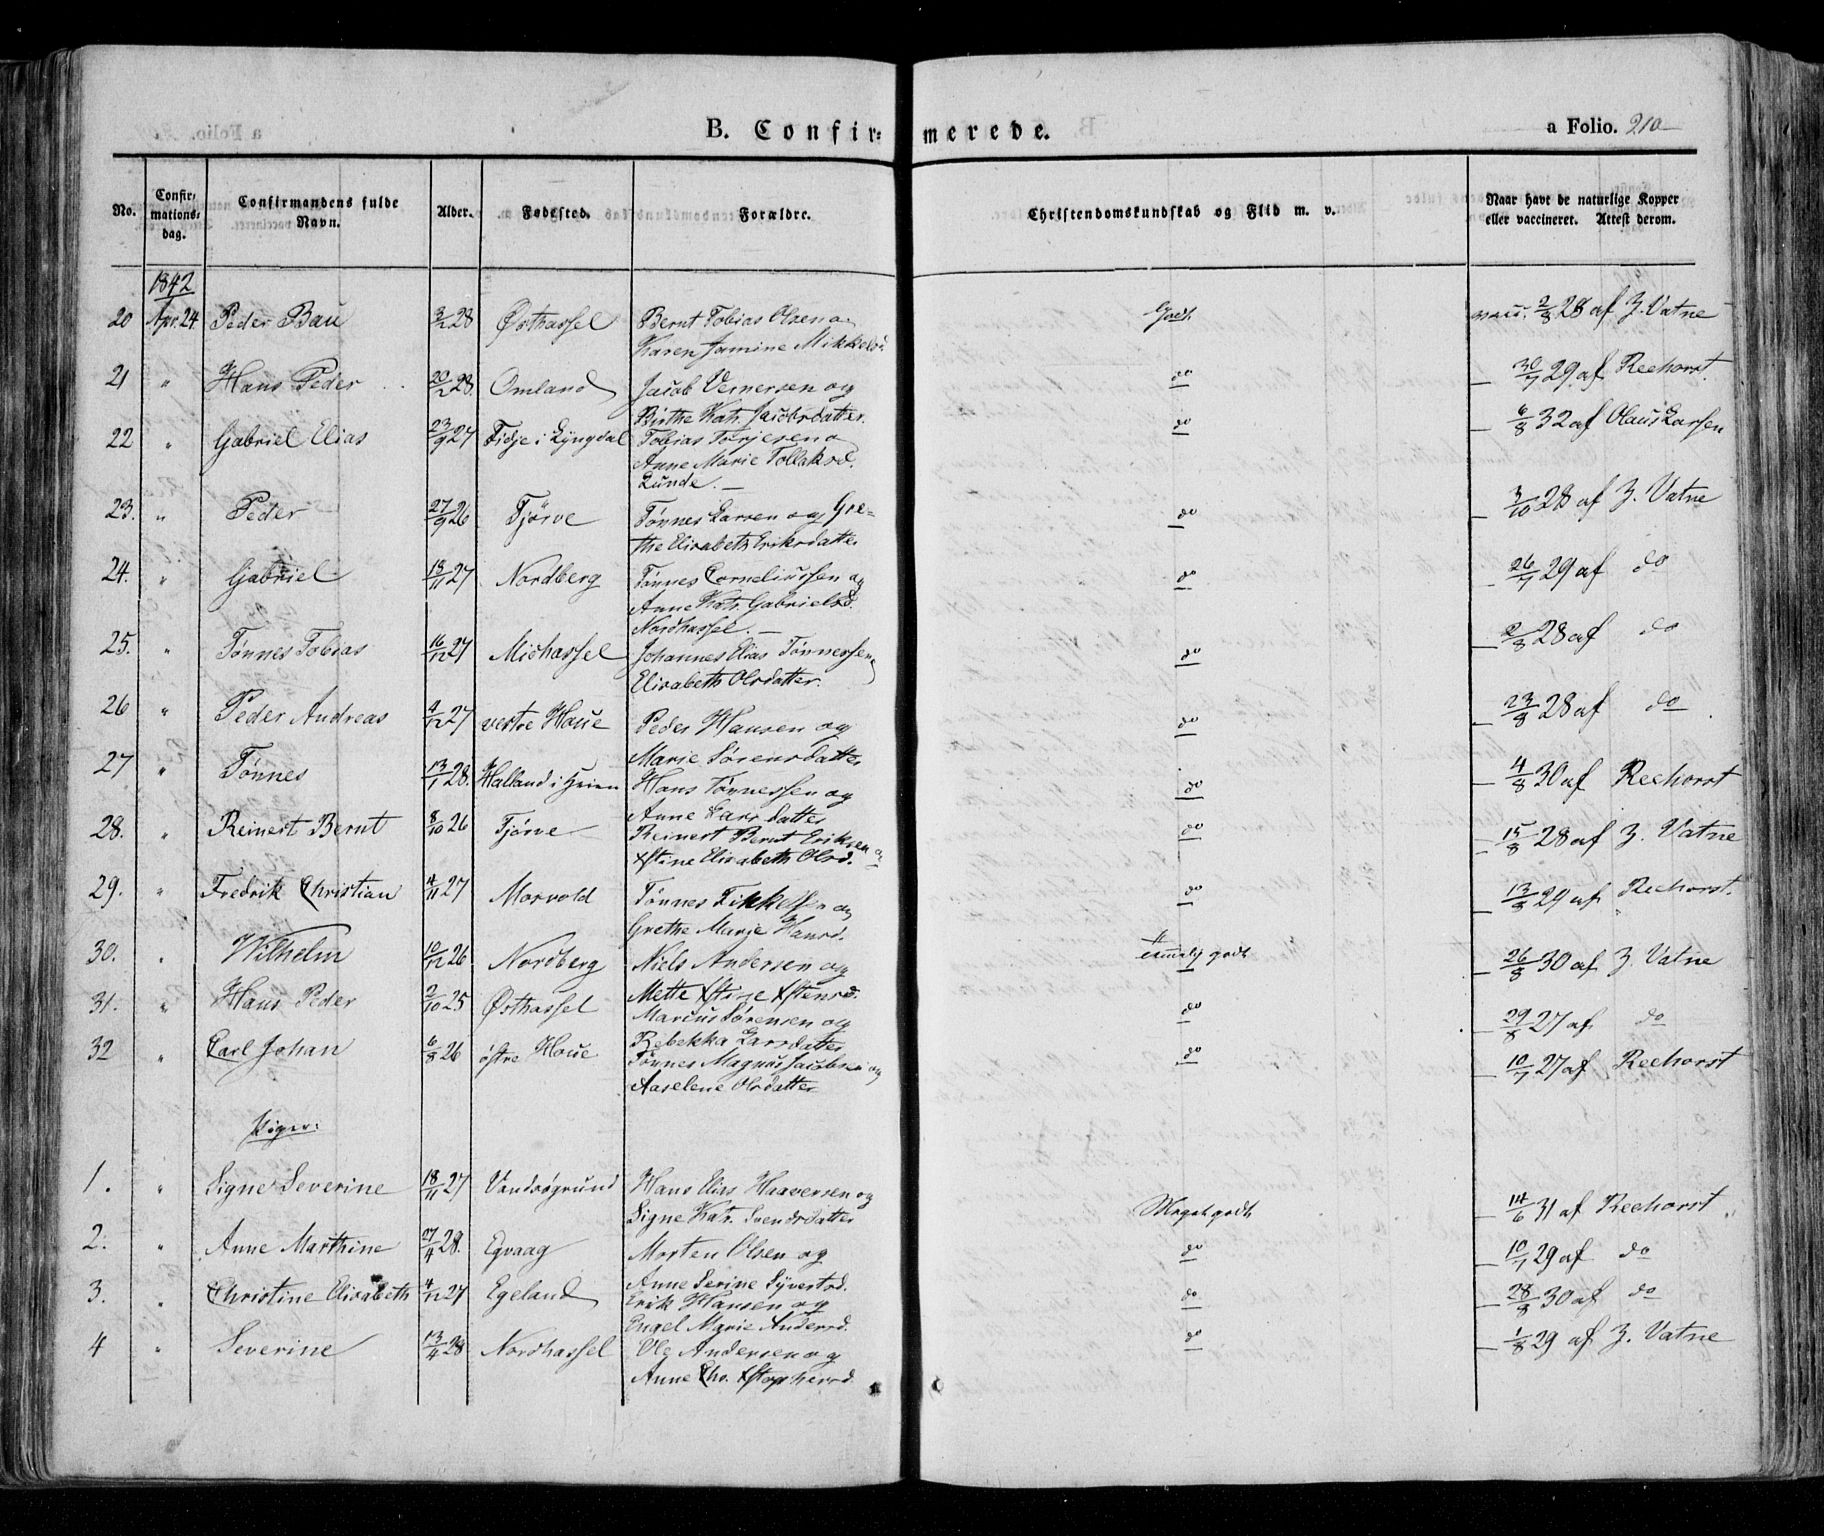 B. Confir= merede.
a Folio. 210
No. | Confir-mations-dag. | Confirmandens fulde Navn. | Alder. | Fødested. | Forældre. | Christendomskundskab og Flid m. v. | Naar havt de naturlige Kopper eller vaccineret. Attest derom.
1842
20 Apr. 24. Peder Bau 3/2 28 Østhassel Bernt Tobias Olsen o Godt vacc. 2/8 28 af Z. Vatne
Karen Jamine Mikkelsd.
21 " Hans Peder 20/2 28. Omland Jacob Vernersen og do — 30/7 29. af Reehorst.
Birthe Kat. Jacobsdatter.
22 " Gabriel Elias 23/9 27 Fidje i Lyngdal Tobias Torjesen o do — 6/8 32 af Olaus Larsen
Anne Marie Tollaksd.
Lunde. —
23. " Peder 27/9 26 Tjørve Tønnes Larsen og Gre= do — 3/10 28 af Z. Vatne
the Elisabeth Eriksdatter
24. " Gabriel 18/11 27 Nordberg Tønnes Corneliussen og do — 26/7 29 af do
Anne Kat. Gabrielsd.
Nordhassel. —
25. " Tønnes Tobias 16/12 27 Midhassel Johannes Elias Tønnessen o do — 2/8 28 af do
Elisabeth Olsdatter.
26 " Peder Andreas 4/12 27 vestre Houe Peder Hansen og do — 23/8 28 af do
Marie Sørensdatter
27 " Tønnes 13/1 28. Halland i Qvien Hans Tønnessen og do — 4/8 30 af Reehorst
Anne Larsdatter
28. " Reinert Bernt 8/10 26 Tjørve Reinert Bernt Eriksen og do — 15/8 28 af Z. Vatne
Xstine Elisabeth Olsd.
29. " Fredrik Christian 4/11 27 Morvold Tønnes Tikkelsen og do — 13/8 29 af Reehorst.
Grethe Marie Hansd.
30. " Wilhelm 10/12 26 Nordberg Niels Andersen og temmelig godt — 26/8 30 af Z. Vatne
Mette Xstine Xstensd.
31. " Hans Peder 2/10 25 Østhassel Marcus Sørensen og do — 29/8 27 af do
Rebekka Larsdatter
32 " Carl Johan 6/8 26 østre Houe Tønnes Magnus Jacobsen og do — 10/7 27 af Reehorst
Aaselene Olsdatter
Piger:
1. " Signe Severine 18/11 27 Vandsøgrund Hans Elias Haaversen og Meget godt — 14/6 31 af Reehorst
Signe Kat. Svendsdatter
2. " Anne Marthine 27/4 28. Egvaag Morten Olsen og do — 10/7 29 af do
Anne Serine Syvertsd.
3. " Christine Elisabeth 4/12 27 Egeland Erik Hansen og do — 28/8 30 af do
Engel Marie Andersd.
4 " Severine 13/4 28 Nordhassel Ole Andersen og do — 1/8 29 af Z. Vatne
Anne Chr. Xstophersd.